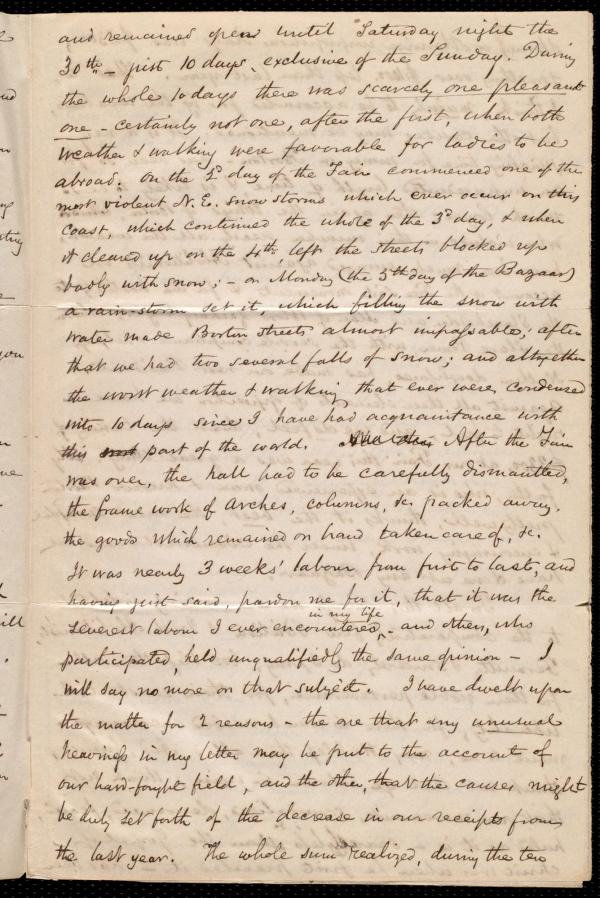 and remained open until Saturday night the
30th – just 10 days, exclusive of the Sunday. During
the whole 10 days there was scarcely one pleasant
one – certainly not one, after the first, when both
weather & walking were favorable for ladies to be
abroad. On the 2d day of the Fair commenced one of the
most violent N.E. snow storms which ever occur on this
coast, which continued the whole of the 3d day, & when
it cleared up on the 4th, left the streets blocked up
badly with snow; – on Monday (the 5th day of the Bazaar)
a rain-storm set it, which filling the snow with
water made Boston streets almost impassable; after
that we had two several falls of snow; and altogether
the worst weather & walking that ever were condensed
into 10 days since I have had acquaintance with
this part of the world. After the Fair
was over, the hall had to be carefully dismantled,
the frame work of arches, columns, &c. packed away,
the goods which remained on hand taken care of, &c.
It was nearly 3 weeks' labour from first to last, and
having just said, pardon me for it, that it was the
severest labour I ever encountered in my life, – and others, who
participated, held unqualifiedly the same opinion – I
will say no more on that subject. I have dwelt upon
the matter for 2 reasons – the one that any unusual
heaviness in my letter may be put to the account of
our hard-fought field, and the other, that the causes might
be duly set forth of the decrease in our receipts from
the last year. The whole sum realized, during the ten